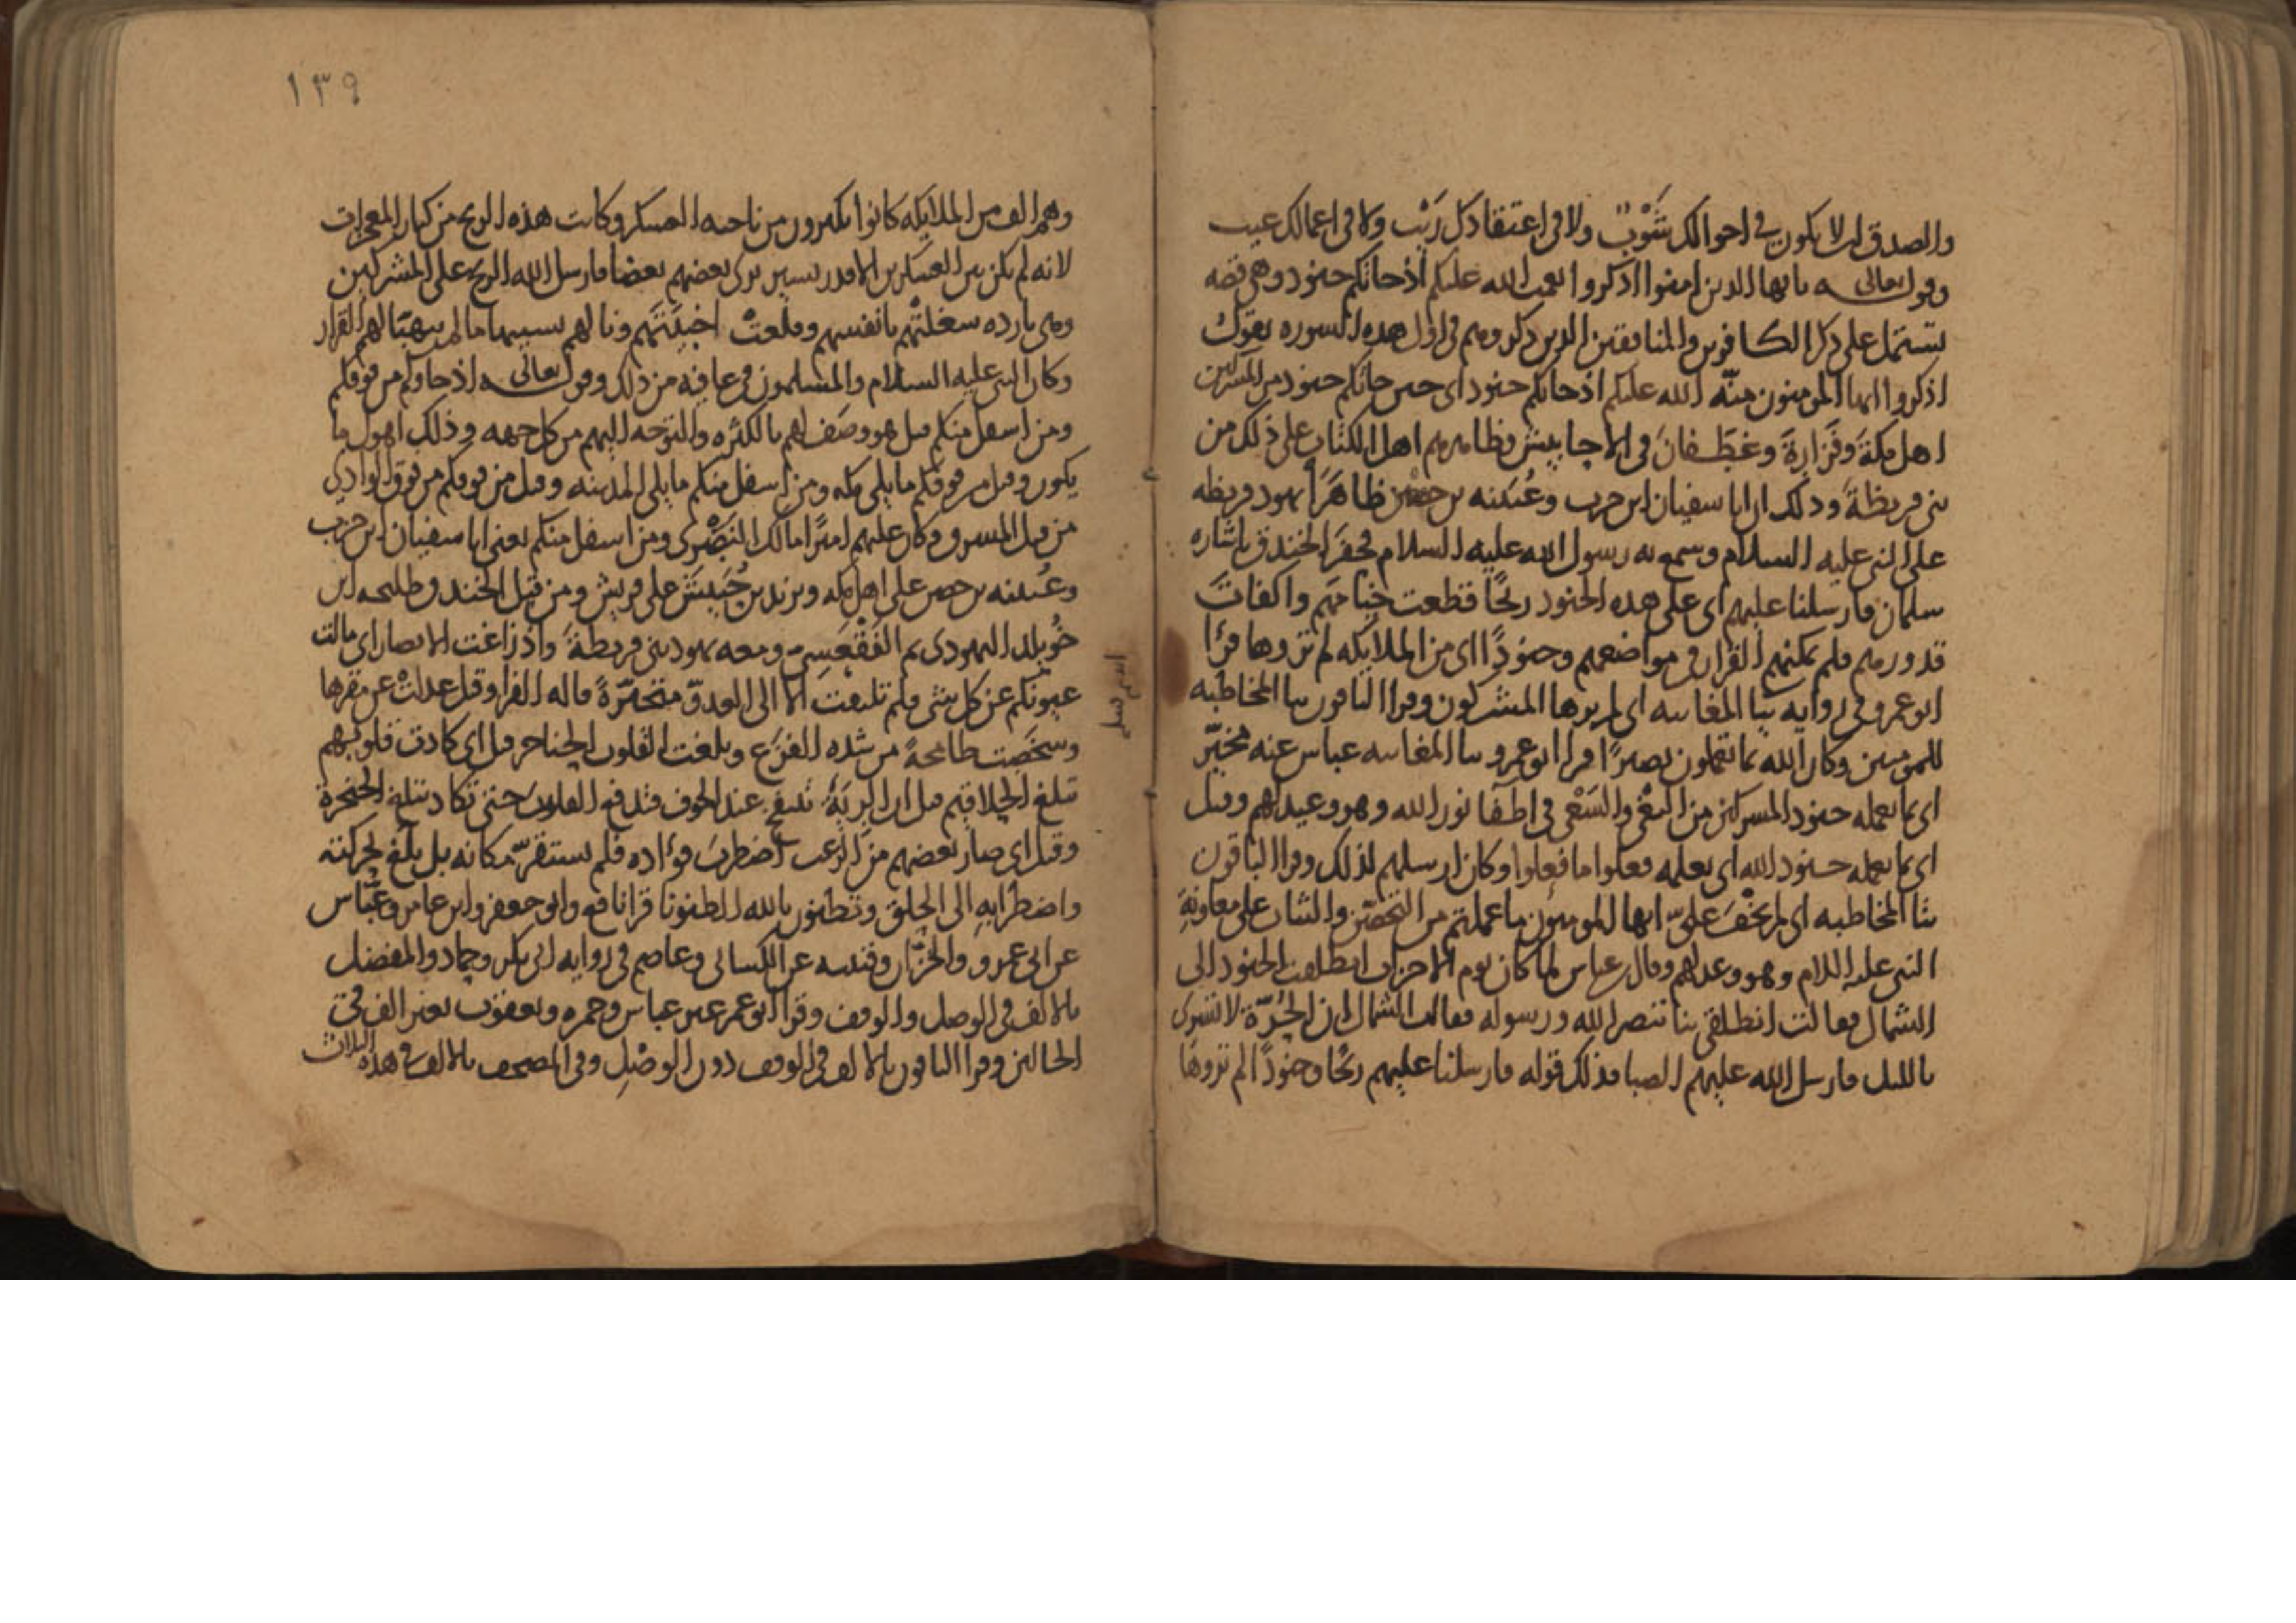 والصدق ان لا يكون في احوالك شَوْبٌ ولا في اعتقادك رَيْب ولا في اعمالك عيب
وقوله تعالى يا ايها الذين امنوا اذكروا نعمت الله عليكم اذ جاتكم جنود وهي قصه
تشتمل على ذكر الكافرين والمنافقين الذين ذكروهم في اول هذه السوره يقول
اذكروا ايها المومنون منّه الله عليكم اذ جاتكم جنود اى حين جاتكم جنود من المشركين
اهل مكةَ وفَزارةَ وغَطَفانَ في الاحابيش وظاهرهم اهل الكتاب على ذلك من
بنى قريظةَ وذلك ان ابا سفيان ابن حرب وعُيَينه بن حصن ظاهَرَا يهود قريظه
على النبي عليه السلام وسمع به رسول الله عليه السلام فحفَرَ الخندق باشاره
سلمان فارسلنا عليهم اى على هذه الجنود ريحًا فقطعت خيامَهم واكفات
قدورهم فلم يمكنهم القرار في مواضعهم وجنودًا اى من الملايكه لم تروها قرا
ابو عمرو في روايه بيا المغايبه اى لم يرها المشركون وقرا الباقون بتا المخاطبه
للمومنين وكان الله بما تعملون بصيرًا قرا ابو عمرو بيا المغايبه عباس عنه مخيّر
اى بما يعمله جنود المشركين من البغْى والسَعْى في اطفا نور الله وهو وعيد لهم وقيل
اى بما يعمله جنود الله اى يعلمه فعلوا ما فعلوا وكان ارسلهم لذلك وقرا الباقون
بتا المخاطبه اى لم يخْفَ علىّ ايها المومنون ما عملتم من التحصّن والثبات على معاونةِ
النبي عليه السلام وهو وعد لهم وقال ابن عباس لما كان يوم الاحزاب انطلقت الجنود الى
الشمال فقالت انطلقى بنا ننصر الله ورسوله فقالت الشمال ان الحُرّةَ لا تسرى
بالليل فارسل الله عليهم الصبا فذلك قوله فارسلنا عليهم ريحًا وجنودًا لم تروها
١٣٩
وهم الف من الملايكه كانوا يكبرون من ناحيه العسكر وكانت هذه الريح من كبار المعجزات
لانه لم يكن بين العسكرين الا قدر يسير يرى بعضهم بعضا فارسل الله الريح على المشركين
وهى بارده شغلتْهم بانفسهم وقلعتْ اخبِيَتَهم ونالهم بسببها ما لم يتهيّا لهم القرار
وكان النبي عليه السلام والمسلمون في عافيه من ذلك وقوله تعالى اذ جاوكم من فوقكم
ومن اسفل منكم قيل هو وصَف لهم بالكثره والتوجه اليهم من كل جهه وذلك اهول ما
يكون وقيل من فوقكم ما يلى مكه ومن اسفل منكم ما يلى المدينه وقيل من فوقكم من فوق الوادى
من قبل المشرق وكان عليهم اميرًا مالك النَصْرى ومن اسفل منكم يعنى ابا سفيان ابن حرب
وعُيينه بن حصن على اهل مكه ويزيد بن جُحَيش على قريش ومن قِبَل الخندق طلحه ابن
خُويلد اليهودى ثم الفَقْعَسِى ومعه يهود بنى قريظةَ واذ زاغت الابصار اى مالت
عيونكم عن كل شى فلم تلتفت الا الى العدوّ متحيّرةً قاله الفرا وقيل عدلتْ عن مقرها
وشخَصَت طامحةً من شده الفزَع وبلغت القلوب الحناجر قيل اى كادت قلوبهم
تبلغ الحلاقيم قيل ان الرِيَهَ تنتفخ عند الخوف فتدفع القلوبَ حتى تكاد تبلغ الحنجرة
وقيل اى صار بعضهم من الرعب اضطربَ فوءاده فلم يستقرّ مكانه بل بلَغَ لحركته
واضطرابِهِ الى الحلق وتظنون بالله الظنونا قرا نافع وابو جعفر وابن عامر وعبّاس
عن ابى عمرو والخزّاز وقتيبه عن الكسائى وعاصم في روايه ابى بكر وحماد والمفضل
بالالف في الوصل والوقف وقرا ابو عمر غير عباس وحمزه ويعقوب بغير الف في
الحالين وقرا الباقون بالالف في الوقف دون الوصْلِ وفي المصحف بالالف في هذه الثلاث